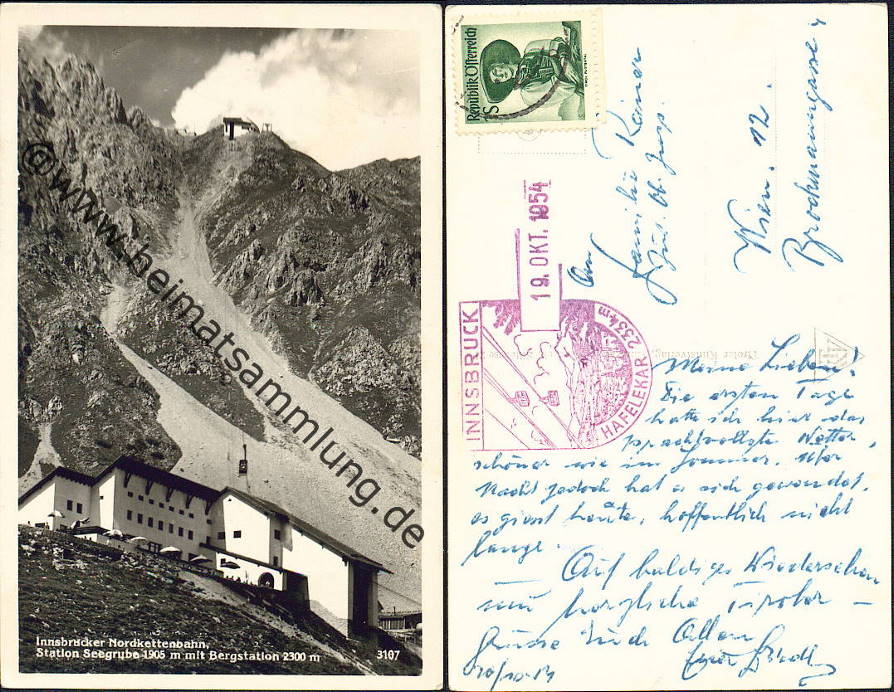 Innsbrucker Nordkettenbahn,
Station Seegrube 1905 m mit Bergstation 2300 m
3107
© www.heimatsammlung.de
Republik Österreich
S
19. OKT. 1954
INNSBRUCK
HAFELEKAR 2334m
An
Familie Rainer
Wien. 12.
Meine Lieben!
Die ersten Tage
hatte ich hier das
prachtvollste Wetter,
schöner wie im Sommer. Über
Nacht jedoch hat es sich gewendet,
es giesst heute, hoffentlich nicht
lange.
Auf baldiges Wiedersehen
und herzliche Tiroler-
Grüsse Euch Allen